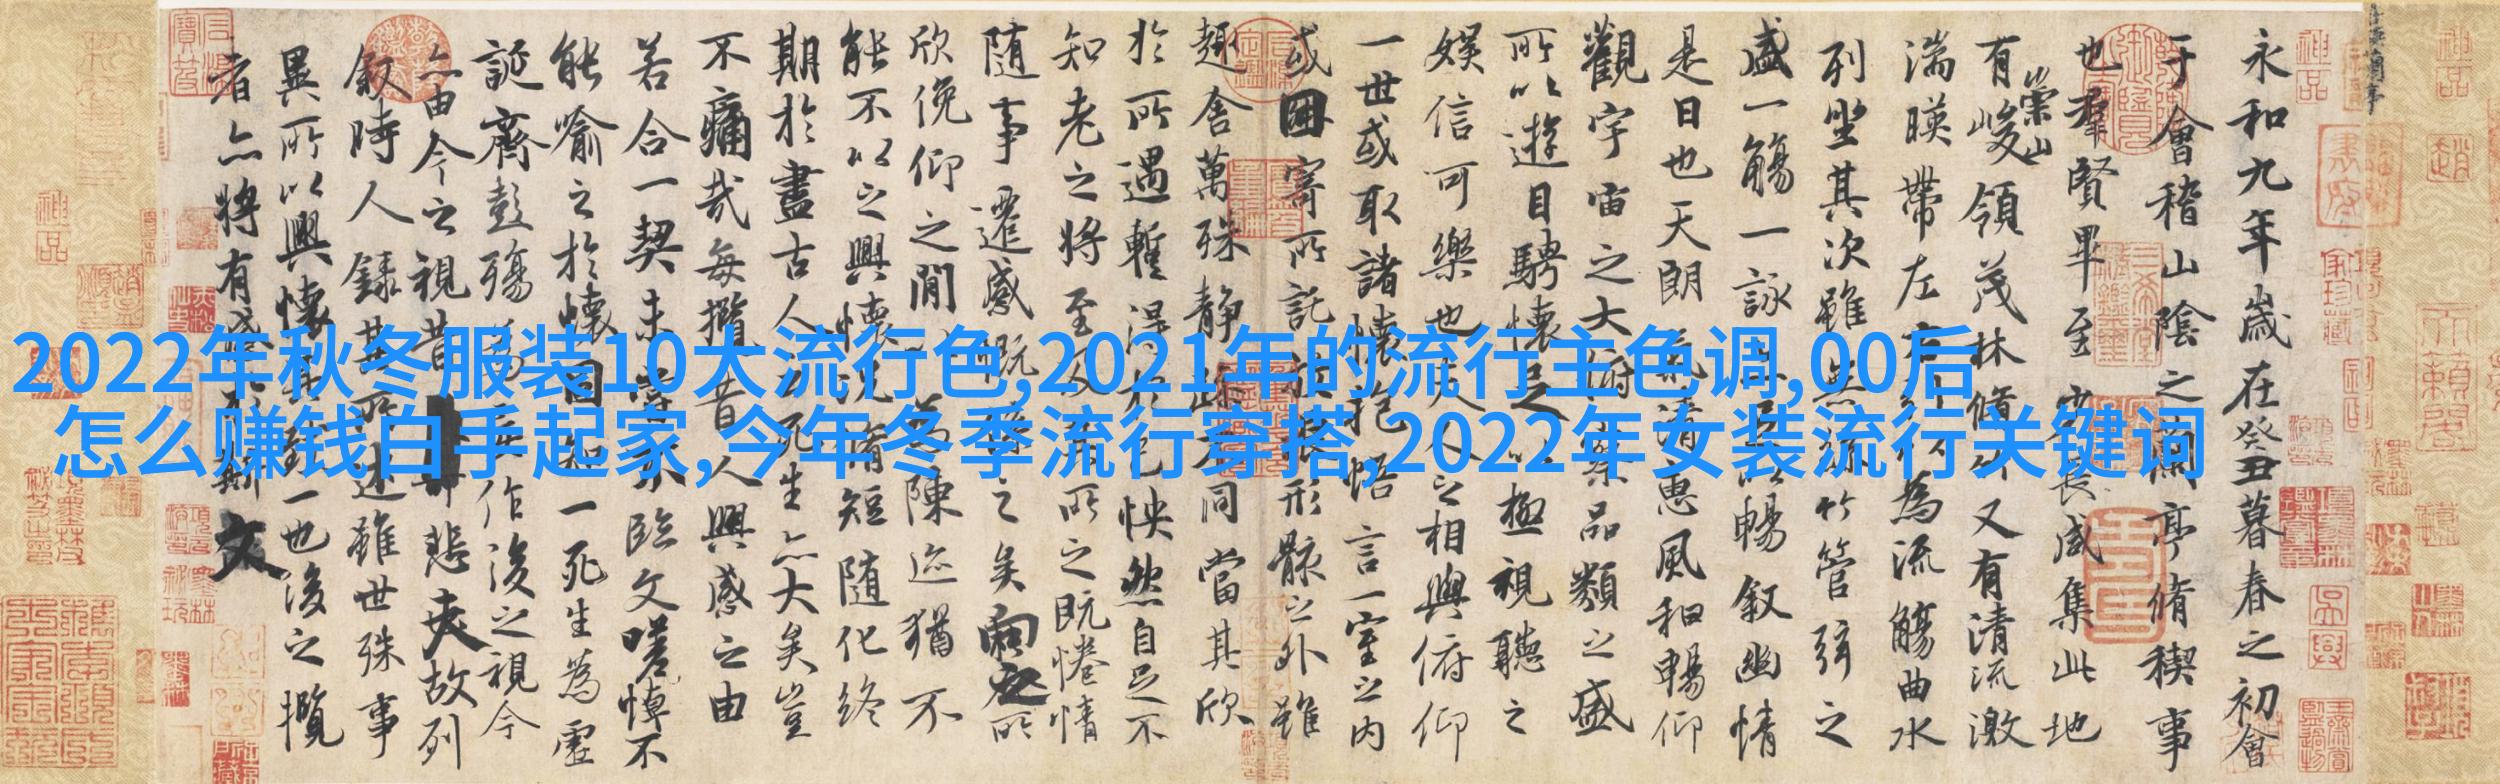 2022年秋冬服装10大流行色,2021年的流行主色调,00后
怎么赚钱白手起家,今年冬季流行穿搭,2022年女装流行关键词
永和九年歲在癸丑暮春之初會
于會稽山陰之蘭亭脩稧事
也羣賢畢至少長咸集此地
有崇山峻領茂林脩竹又有清流激
湍暎帶左右引以為流觴曲水
列坐其次雖無絲竹管弦之
盛一觴一詠亦足以暢敘幽情
是日也天朗氣清惠風和暢仰
觀宇宙之大俯察品類之盛
所以遊目騁懷足以極視聽之
娛信可樂也夫人之相與俯仰
一世或取諸懷抱悟言一室之內
或因寄所託放浪形骸之外雖
趣舍萬殊靜躁不同當其欣
於所遇暫得於己怏然自足不
知老之將至及其所之既惓情
隨事遷感慨係之矣向之所
欣俛仰之閒以為陳迹猶不
能不以之興懷況脩短隨化終
期於盡古人云死生亦大矣豈
不痛哉每攬昔人興感之由
若合一契未嘗不臨文嗟悼不
能喻之於懷固知一死生為虛
誕齊彭殤為妄作後之視今
亦由今之視昔悲夫故列
敘時人錄其所述雖世殊事
異所以興懷其致一也後之攬
者亦將有感於斯文